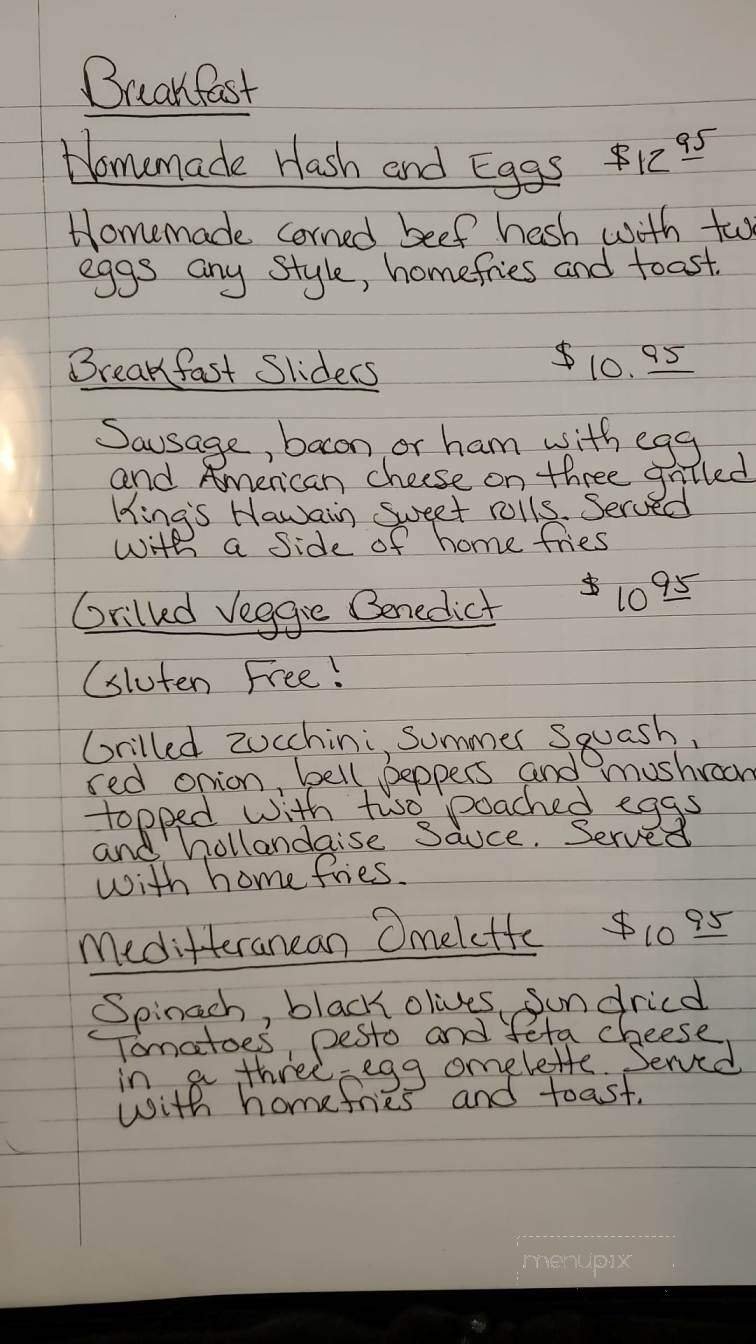 Breakfast
Homemade Hash and Eggs $12 95
Homemade corned beef hash with two
eggs any style, homefries and toast.
Breakfast Sliders $10.95
Sausage, bacon or ham with egg
and American cheese on three grilled
King's Hawain sweet rolls. Served
with a side of home fries
Grilled Veggie Benedict $10 95
Gluten Free!
Grilled zucchini, summer squash,
red onion, bell peppers and mushroom
topped with two poached eggs
and hollandaise sauce. Served
with home fries.
Meditteranean Omelette $10 95
Spinach, black olives, sun dried
Tomatoes, pesto and feta cheese
in a three-egg omelette. Served
with homefries and toast.
menupix